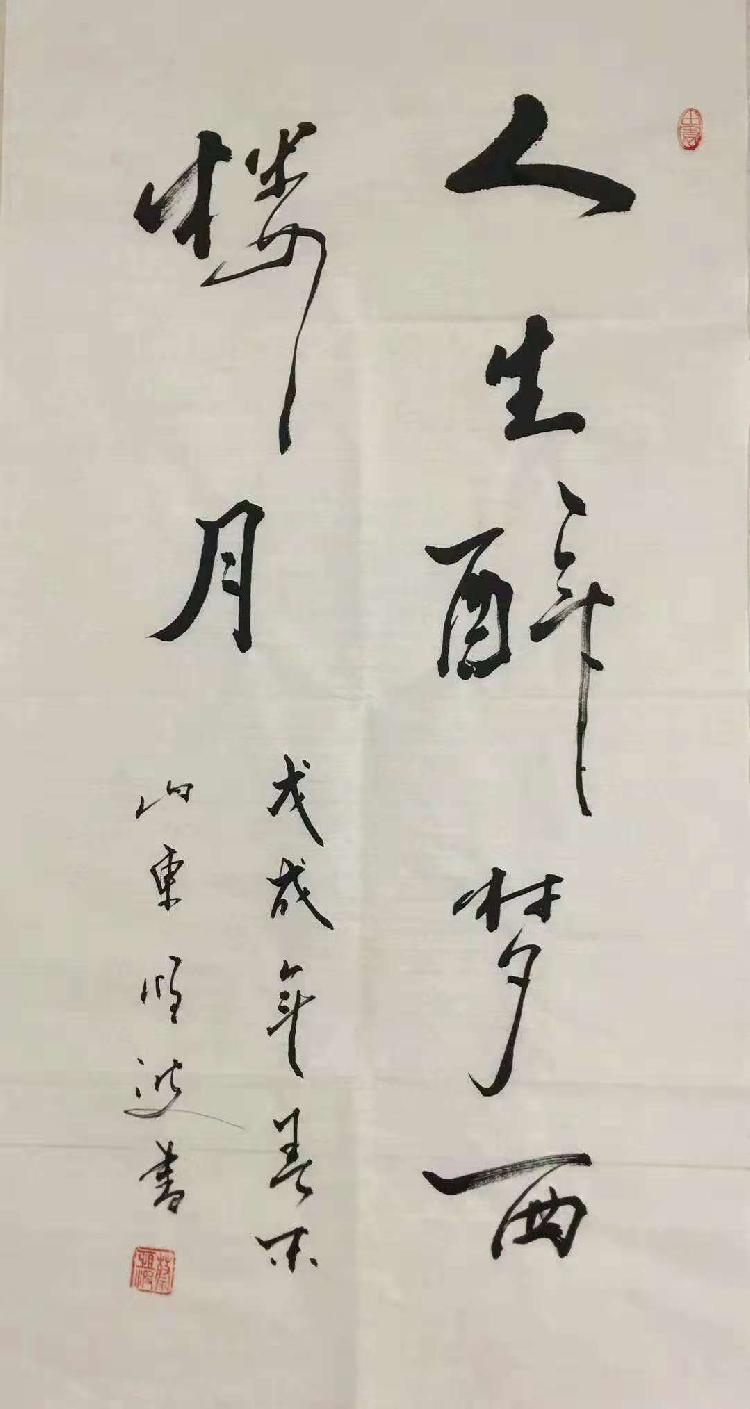 人生醉梦西
楼月
戊戌年末
山东波书